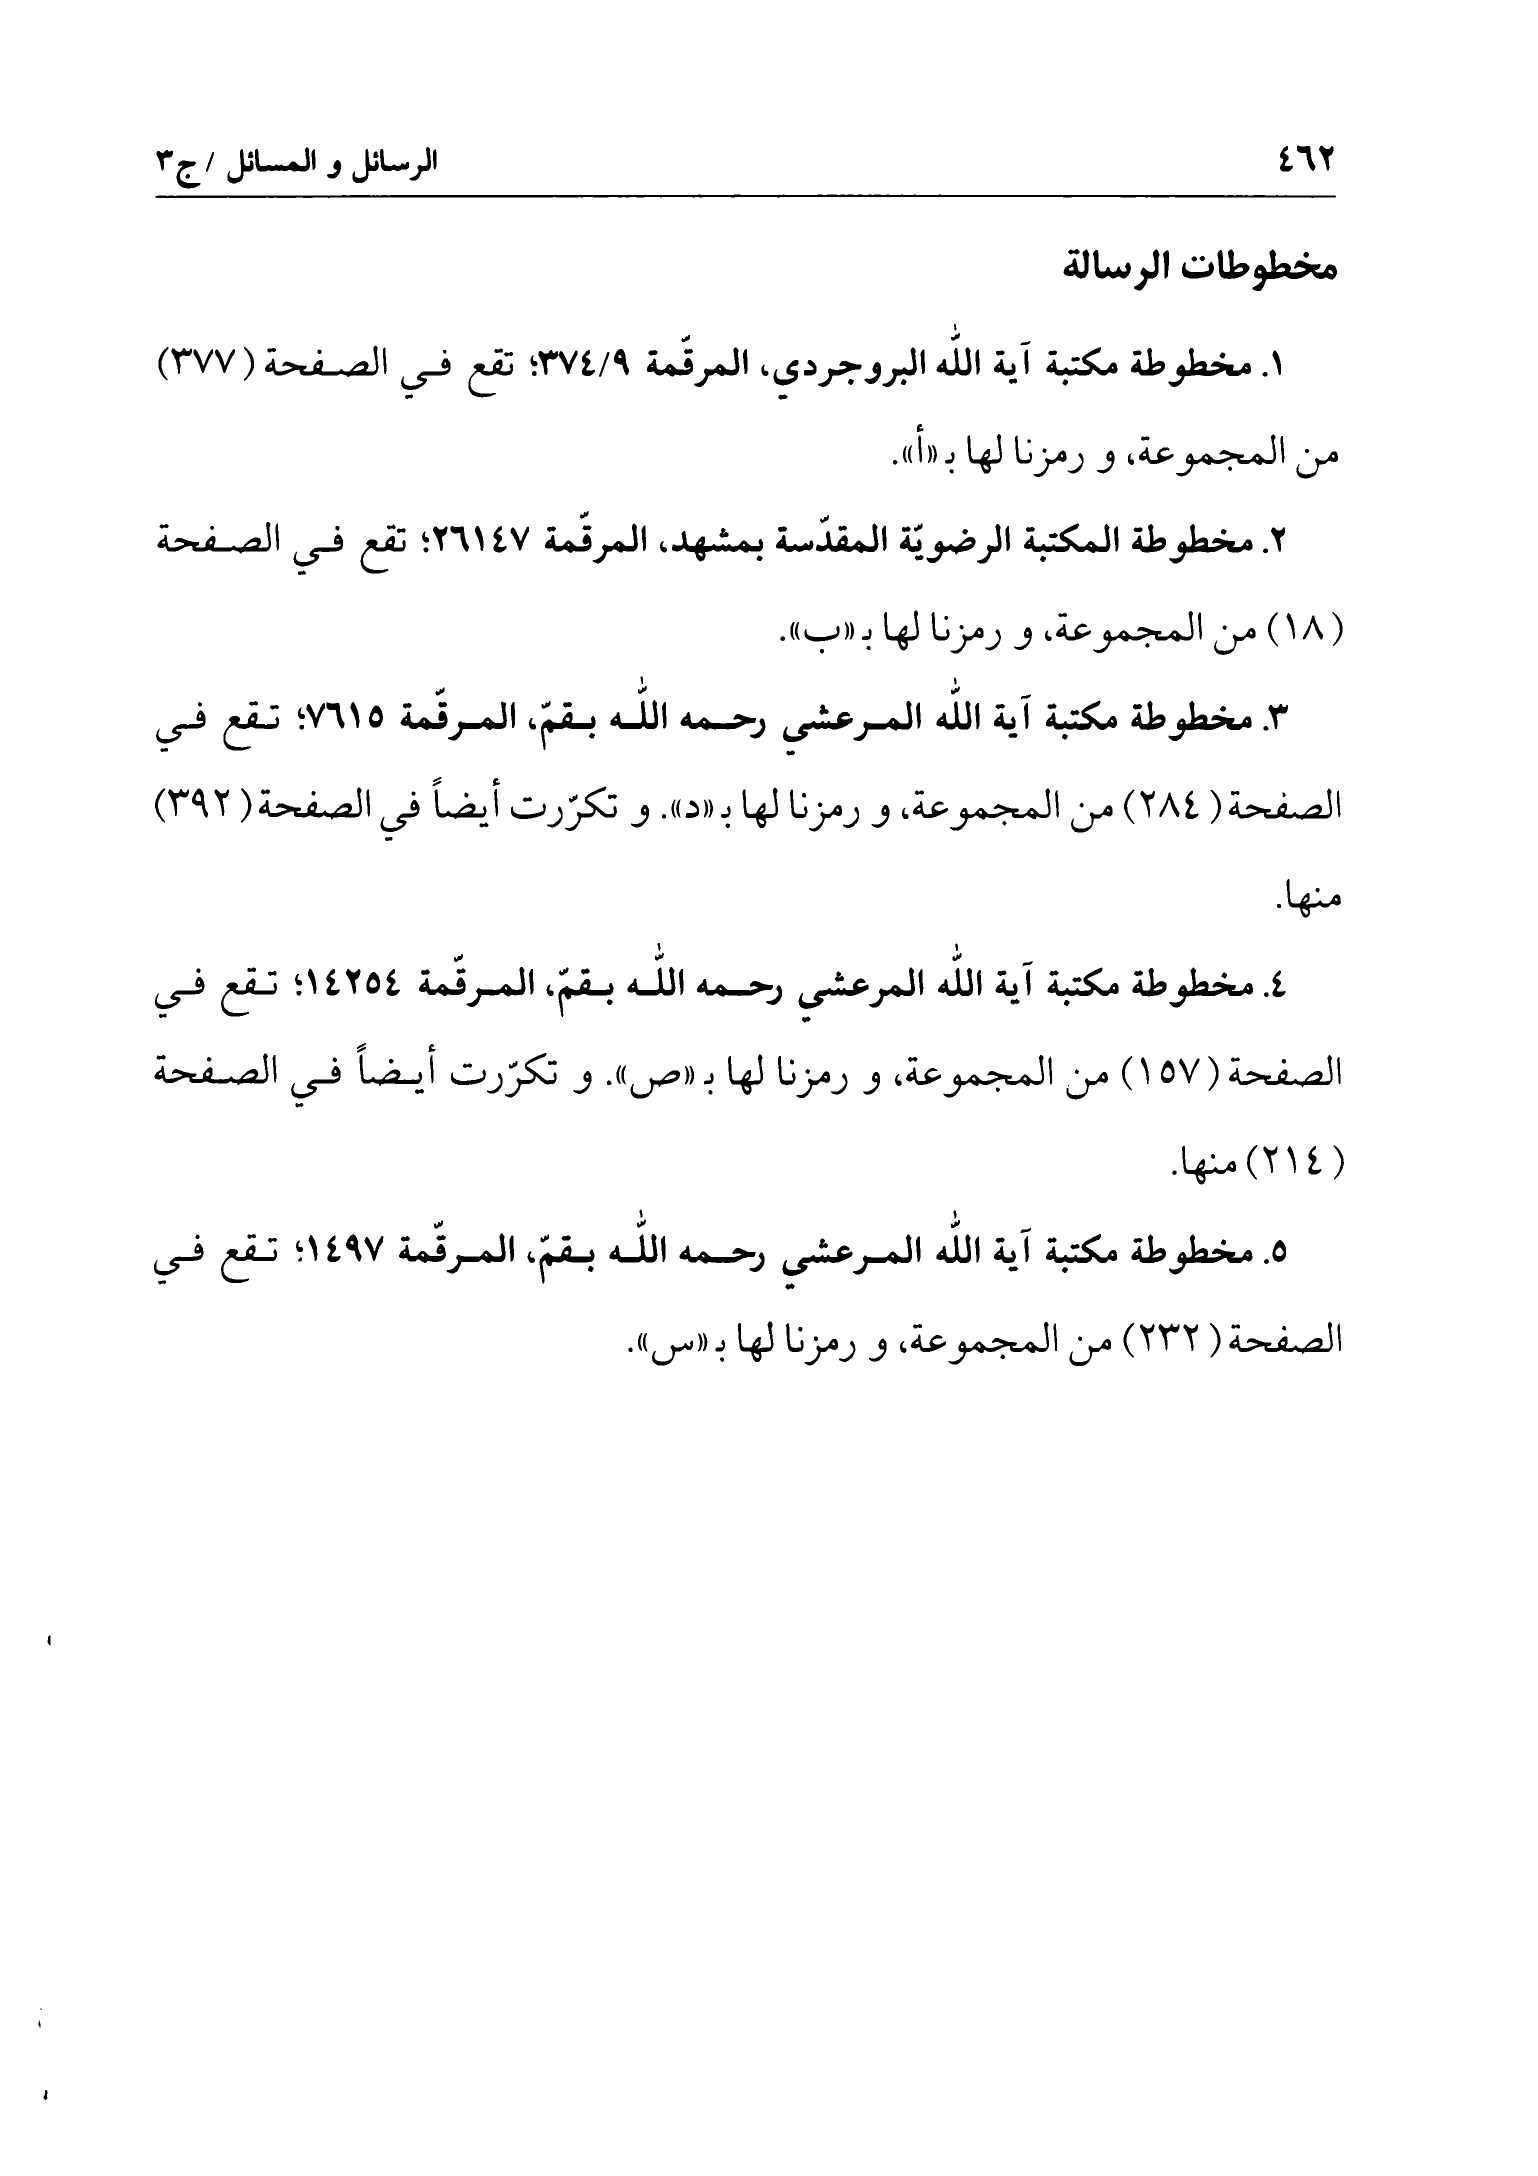 ٤٦٢ الرسائل و المسائل / ج٣
مخطوطات الرسالة
١. مخطوطة مكتبة آية اللّٰه البروجردي، المرقّمة ٣٧٤/٩؛ تقع في الصفحة (٣٧٧)
من المجموعة، و رمزنا لها بـ«أ».
٢. مخطوطة المكتبة الرضويّة المقدّسة بمشهد، المرقّمة ٢٦١٤٧؛ تقع في الصفحة
(١٨) من المجموعة، و رمزنا لها بـ«ب».
٣. مخطوطة مكتبة آية اللّٰه المرعشي رحمه اللّٰه بقمّ، المرقّمة ٧٦١٥؛ تقع في
الصفحة (٢٨٤) من المجموعة، و رمزنا لها بـ«د». و تكرّرت أيضاً في الصفحة (٣٩٢)
منها.
٤. مخطوطة مكتبة آية اللّٰه المرعشي رحمه اللّٰه بقمّ، المرقّمة ١٤٢٥٤؛ تقع في
الصفحة (١٥٧) من المجموعة، و رمزنا لها بـ«ص». و تكرّرت أيضاً في الصفحة
(٢١٤) منها.
٥. مخطوطة مكتبة آية اللّٰه المرعشي رحمه اللّٰه بقمّ، المرقّمة ١٤٩٧؛ تقع في
الصفحة (٢٣٢) من المجموعة، و رمزنا لها بـ«س».